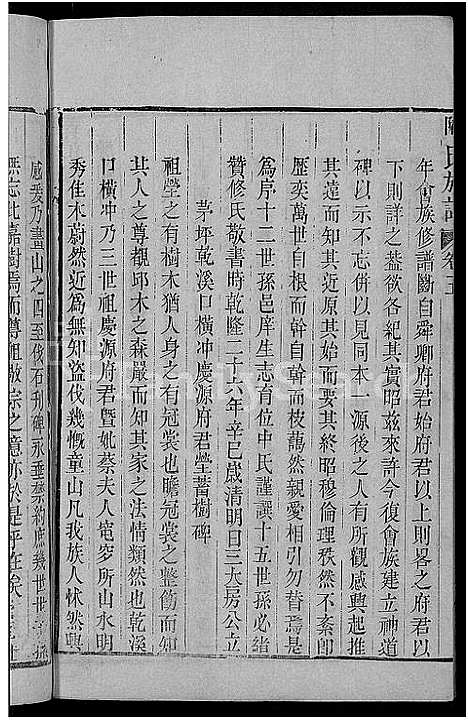 氏族譜 卷五
年會族修譜斷自舜卿府君始府君以上則畧之府君以
下則詳之葢欲各紀其實昭茲來許今復會族建立神道
碑以示不忘併以見同本一源後之有所觀感興起推
其遠而知其近原其始而要其終昭穆倫理秩然不紊即
歴奕萬世自根而幹自幹而枝藹然親愛相引勿替焉是
為序十二世孫邑庠生志育位中氏謹譔十五世孫必緒
贊修氏敬書時乾隆二十六年辛巳歲清明日三大房公立
茅坪乾溪口橫冲慶源府君塋蓄樹碑
祖塋之有樹木猶人身之有冠裳也瞻冠裳之整飭而知
其人之尊觀邱木之森嚴而知其家之法情類然也乾溪
口橫冲乃三世祖慶源府君暨妣蔡夫人窀穸所山水明
秀佳木蔚然近為無知盜伐幾慨童山凡我族人怵然興
感爰乃畫山之四至伐石刋碑永垂桊約庶幾世世子孫
無忘此嘉樹焉而尊祖敬宗之意亦於是乎在矣